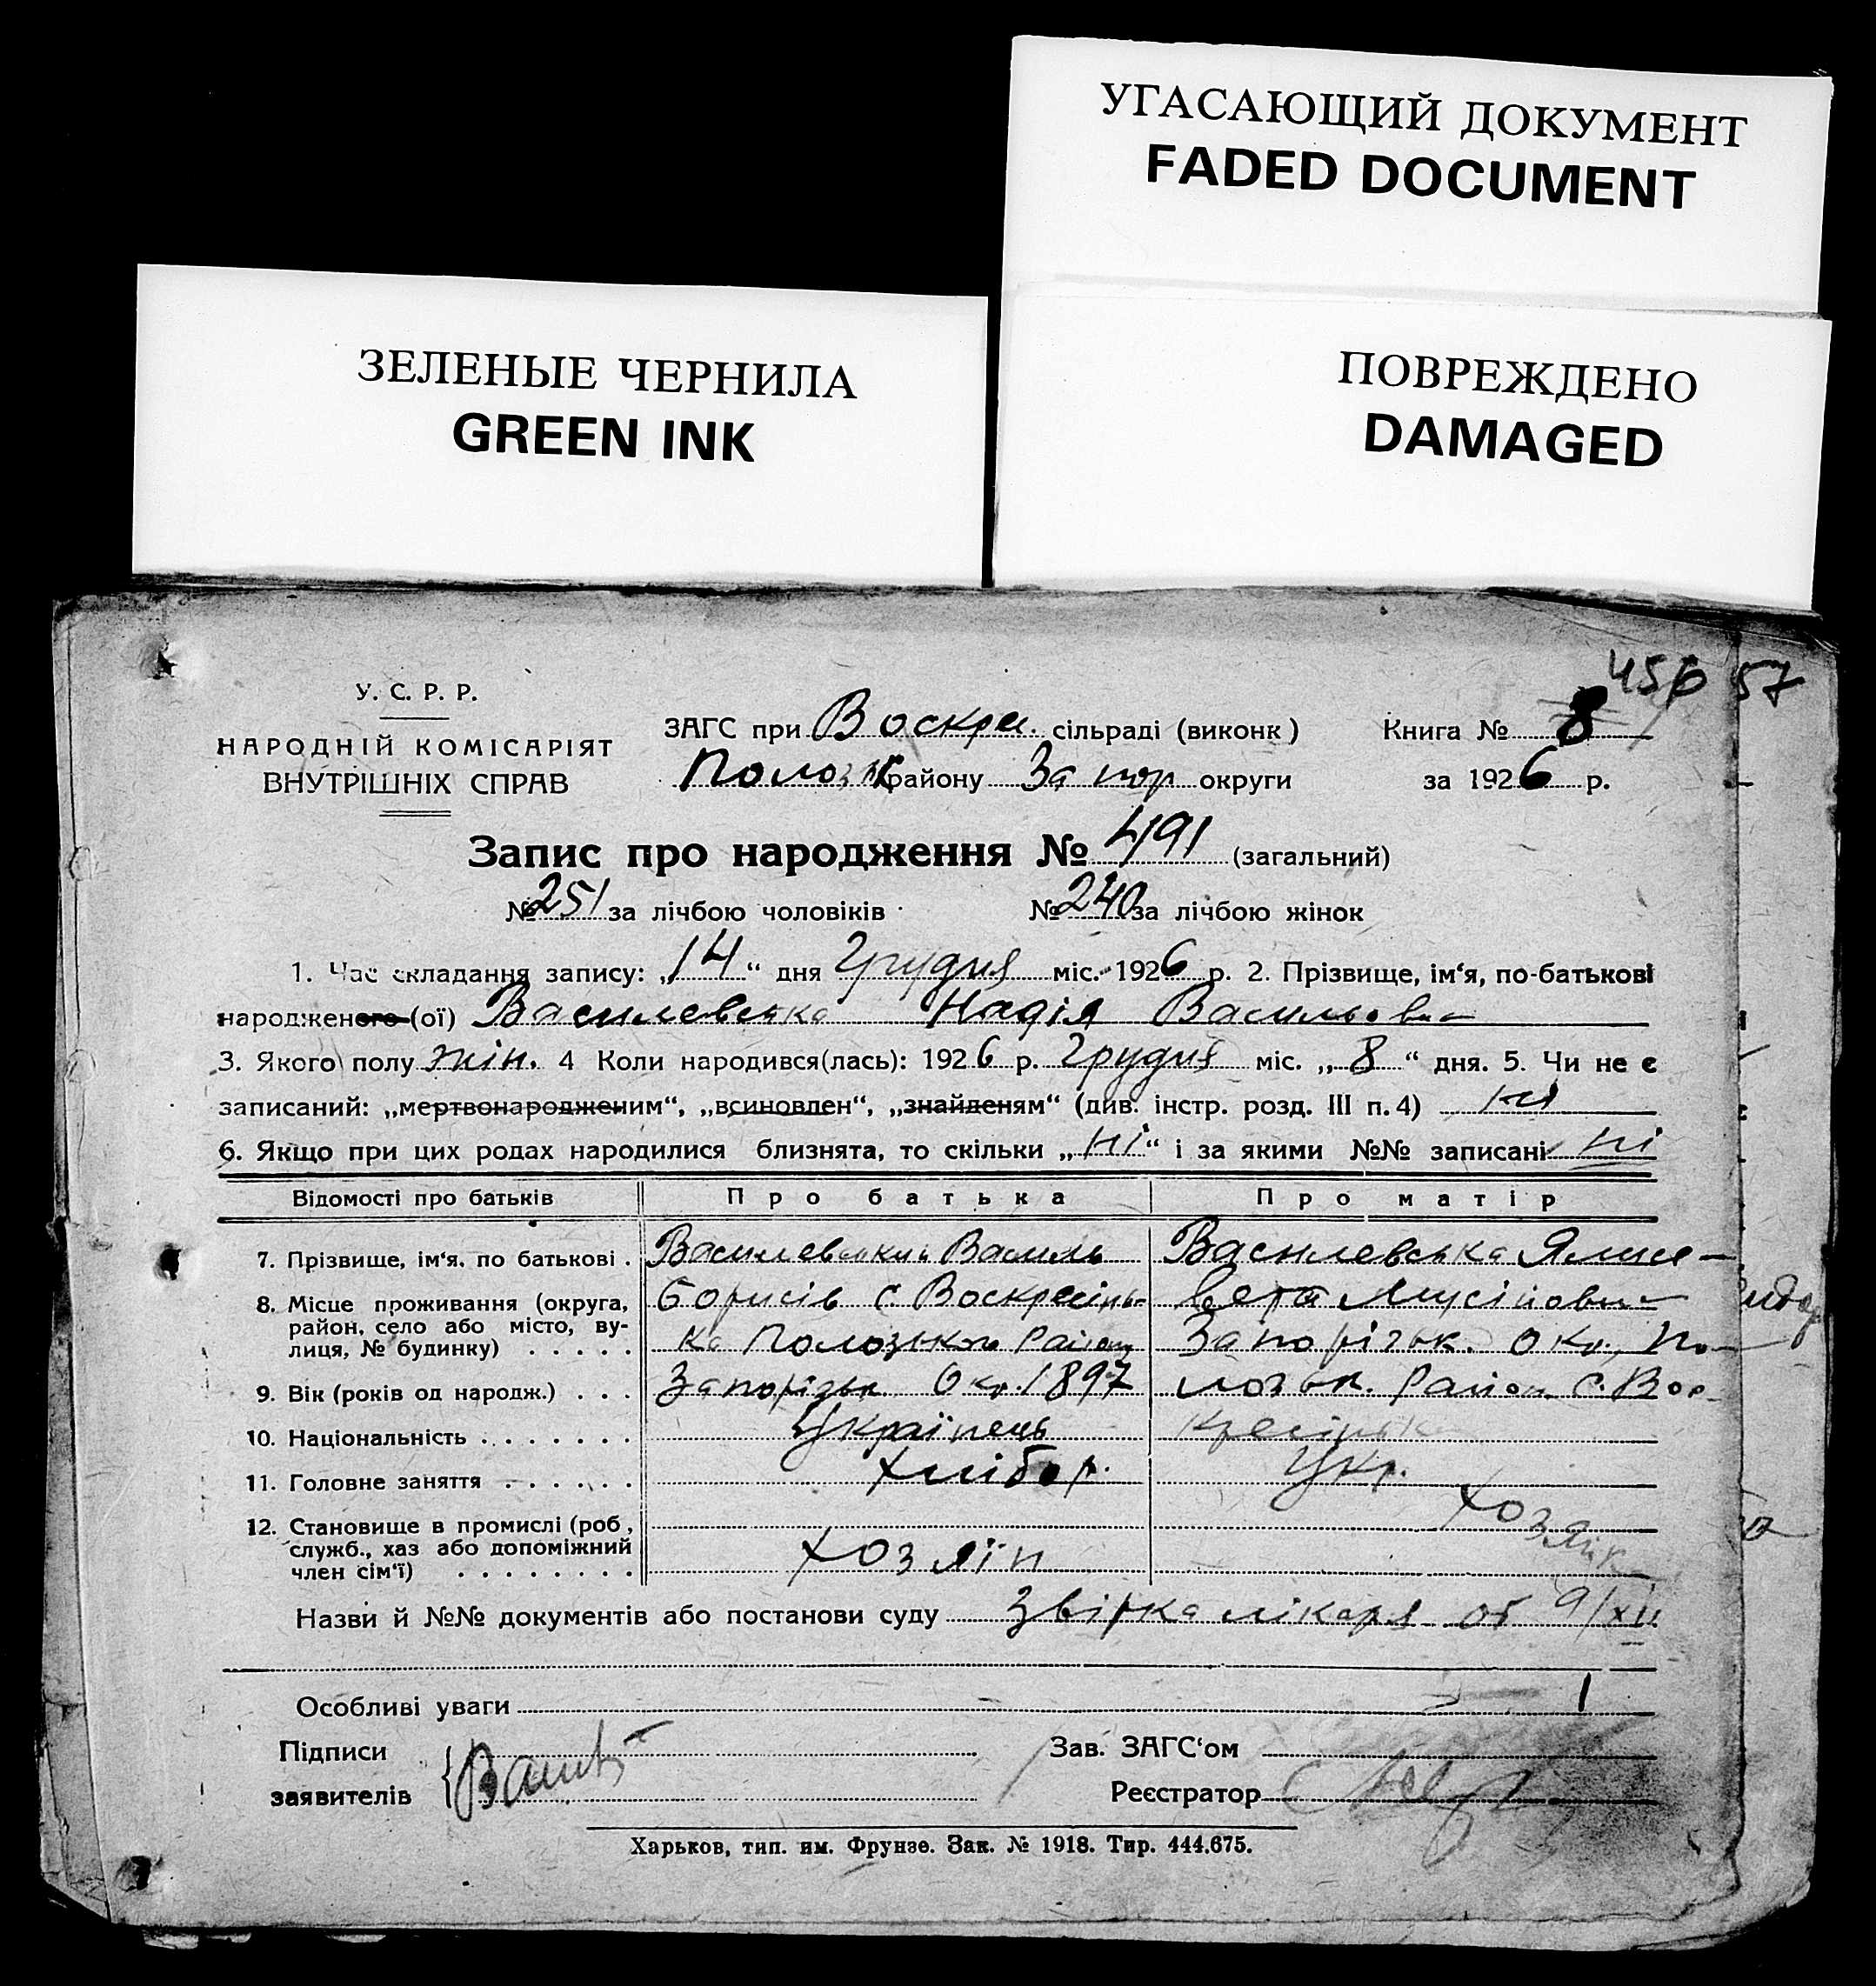 УГАСАЮЩИЙ ДОКУМЕНТ
FADED DOCUMENT
ЗЕЛЕНЫЕ ЧЕРНИЛА
GREEN INK
ПОВРЕЖДЕНО
DAMAGED
456 57
У. С. Р. Р.
НАРОДНІЙ КОМІСАРІЯТ
ВНУТРІШНІХ СПРАВ
ЗАГС при Воскре. сільраді (виконк) Книга № 8
Полозк району Запор округи за 1926 р.
Запис про народження № 491 (загальний)
№ 251 за лічбою чоловіків № 240 за лічбою жінок
1. Час складання запису: „14“ дня Грудня міс. 1926 р. 2. Прізвище, ім‘я, по-батькові
народженого (ої) Василевська Надія Васильовн
3. Якого полу жін. 4 Коли народився(лась): 1926 р. Грудня міс. „8“ дня. 5. Чи не є
записаний: „мертвонародженим“, „всиновлен“, „знайденям“ (див. інстр. розд. III п. 4)
6. Якщо при цих родах народилися близнята, то скільки „ні“ і за якими №№ записані ні
Відомості про батьків Про батька Про матір
7. Прізвище, ім‘я, по батькові . Василевський Василь Василевська Ялисе-
8. Місце проживання (округа, район, село або місто, вулиця, № будинку) . . . . . Борисів с. Воскресінь- вета Мусійовн
ка Полозьког Району Запорізьк. Окр., По-
9. Вік (років од народж.) . . . Запорізьк Окр. 1897 лозьк. Район с. Вос-
10. Національність . . . . . . . Українець кресінька
11. Головне заняття . . . . . . хлібор. Укр.
12. Становище в промислі (роб., служб., хаз або допоміжний член сім‘ї) . . . . . . . . хозяїн хозяйк
Назви й №№ документів або постанови суду лікаря от 9/XII
Особливі уваги 1
Підписи Зав. ЗАГС‘ом
заявителів Реєстратор
Харьков, тип. им. Фрунзе. Зак. № 1918. Тир. 444.675.